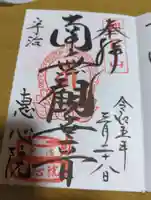 奉拝
令和五年
三月二十八日
南無観世音
宇治
恵心院